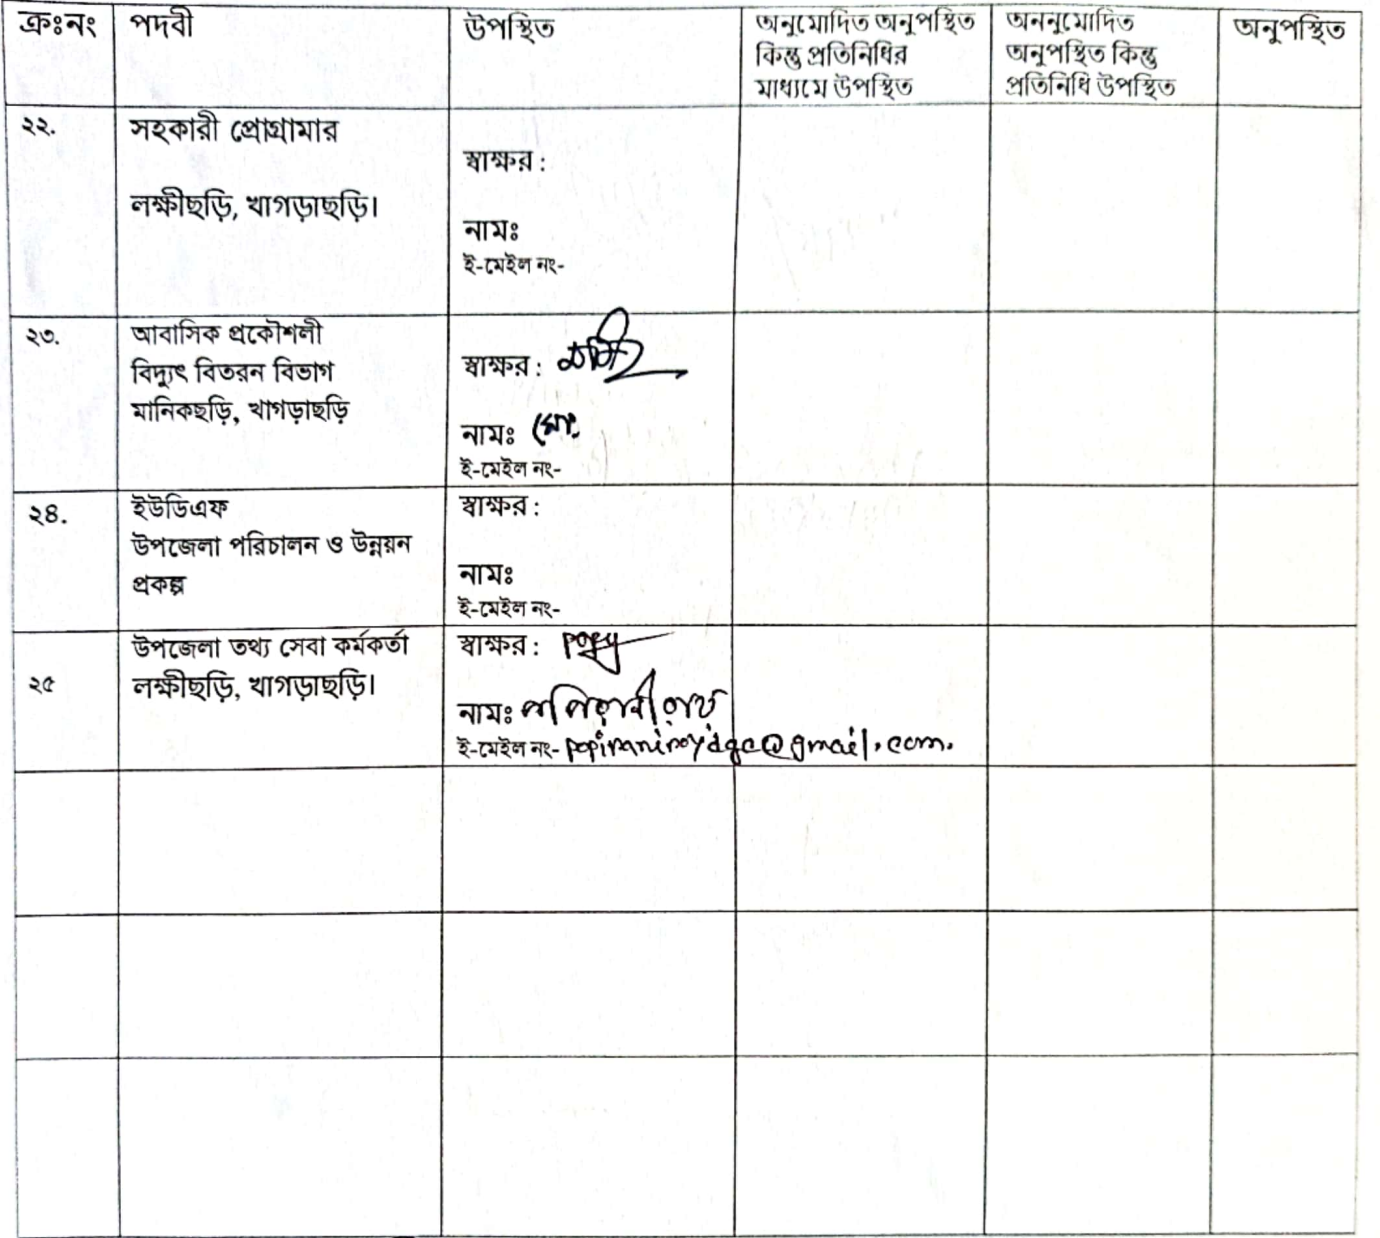 ক্রঃনং পদবী উপস্থিত অনুমোদিত অনুপস্থিত কিন্তু প্রতিনিধির মাধ্যমে উপস্থিত অননুমোদিত অনুপস্থিত কিন্তু প্রতিনিধি উপস্থিত অনুপস্থিত
২২.
সহকারী প্রোগ্রামার
লক্ষীছড়ি, খাগড়াছড়ি।
স্বাক্ষর :
নামঃ
ই-মেইল নং-
২৩.
আবাসিক প্রকৌশলী
বিদ্যুৎ বিতরন বিভাগ
মানিকছড়ি, খাগড়াছড়ি
স্বাক্ষর :
নামঃ মো:
ই-মেইল নং-
২৪.
ইউডিএফ
উপজেলা পরিচালন ও উন্নয়ন
প্রকল্প
স্বাক্ষর :
নামঃ
ই-মেইল নং-
২৫
উপজেলা তথ্য সেবা কর্মকর্তা
লক্ষীছড়ি, খাগড়াছড়ি।
স্বাক্ষর :
নামঃ পপি রানী রায়
ই-মেইল নং-